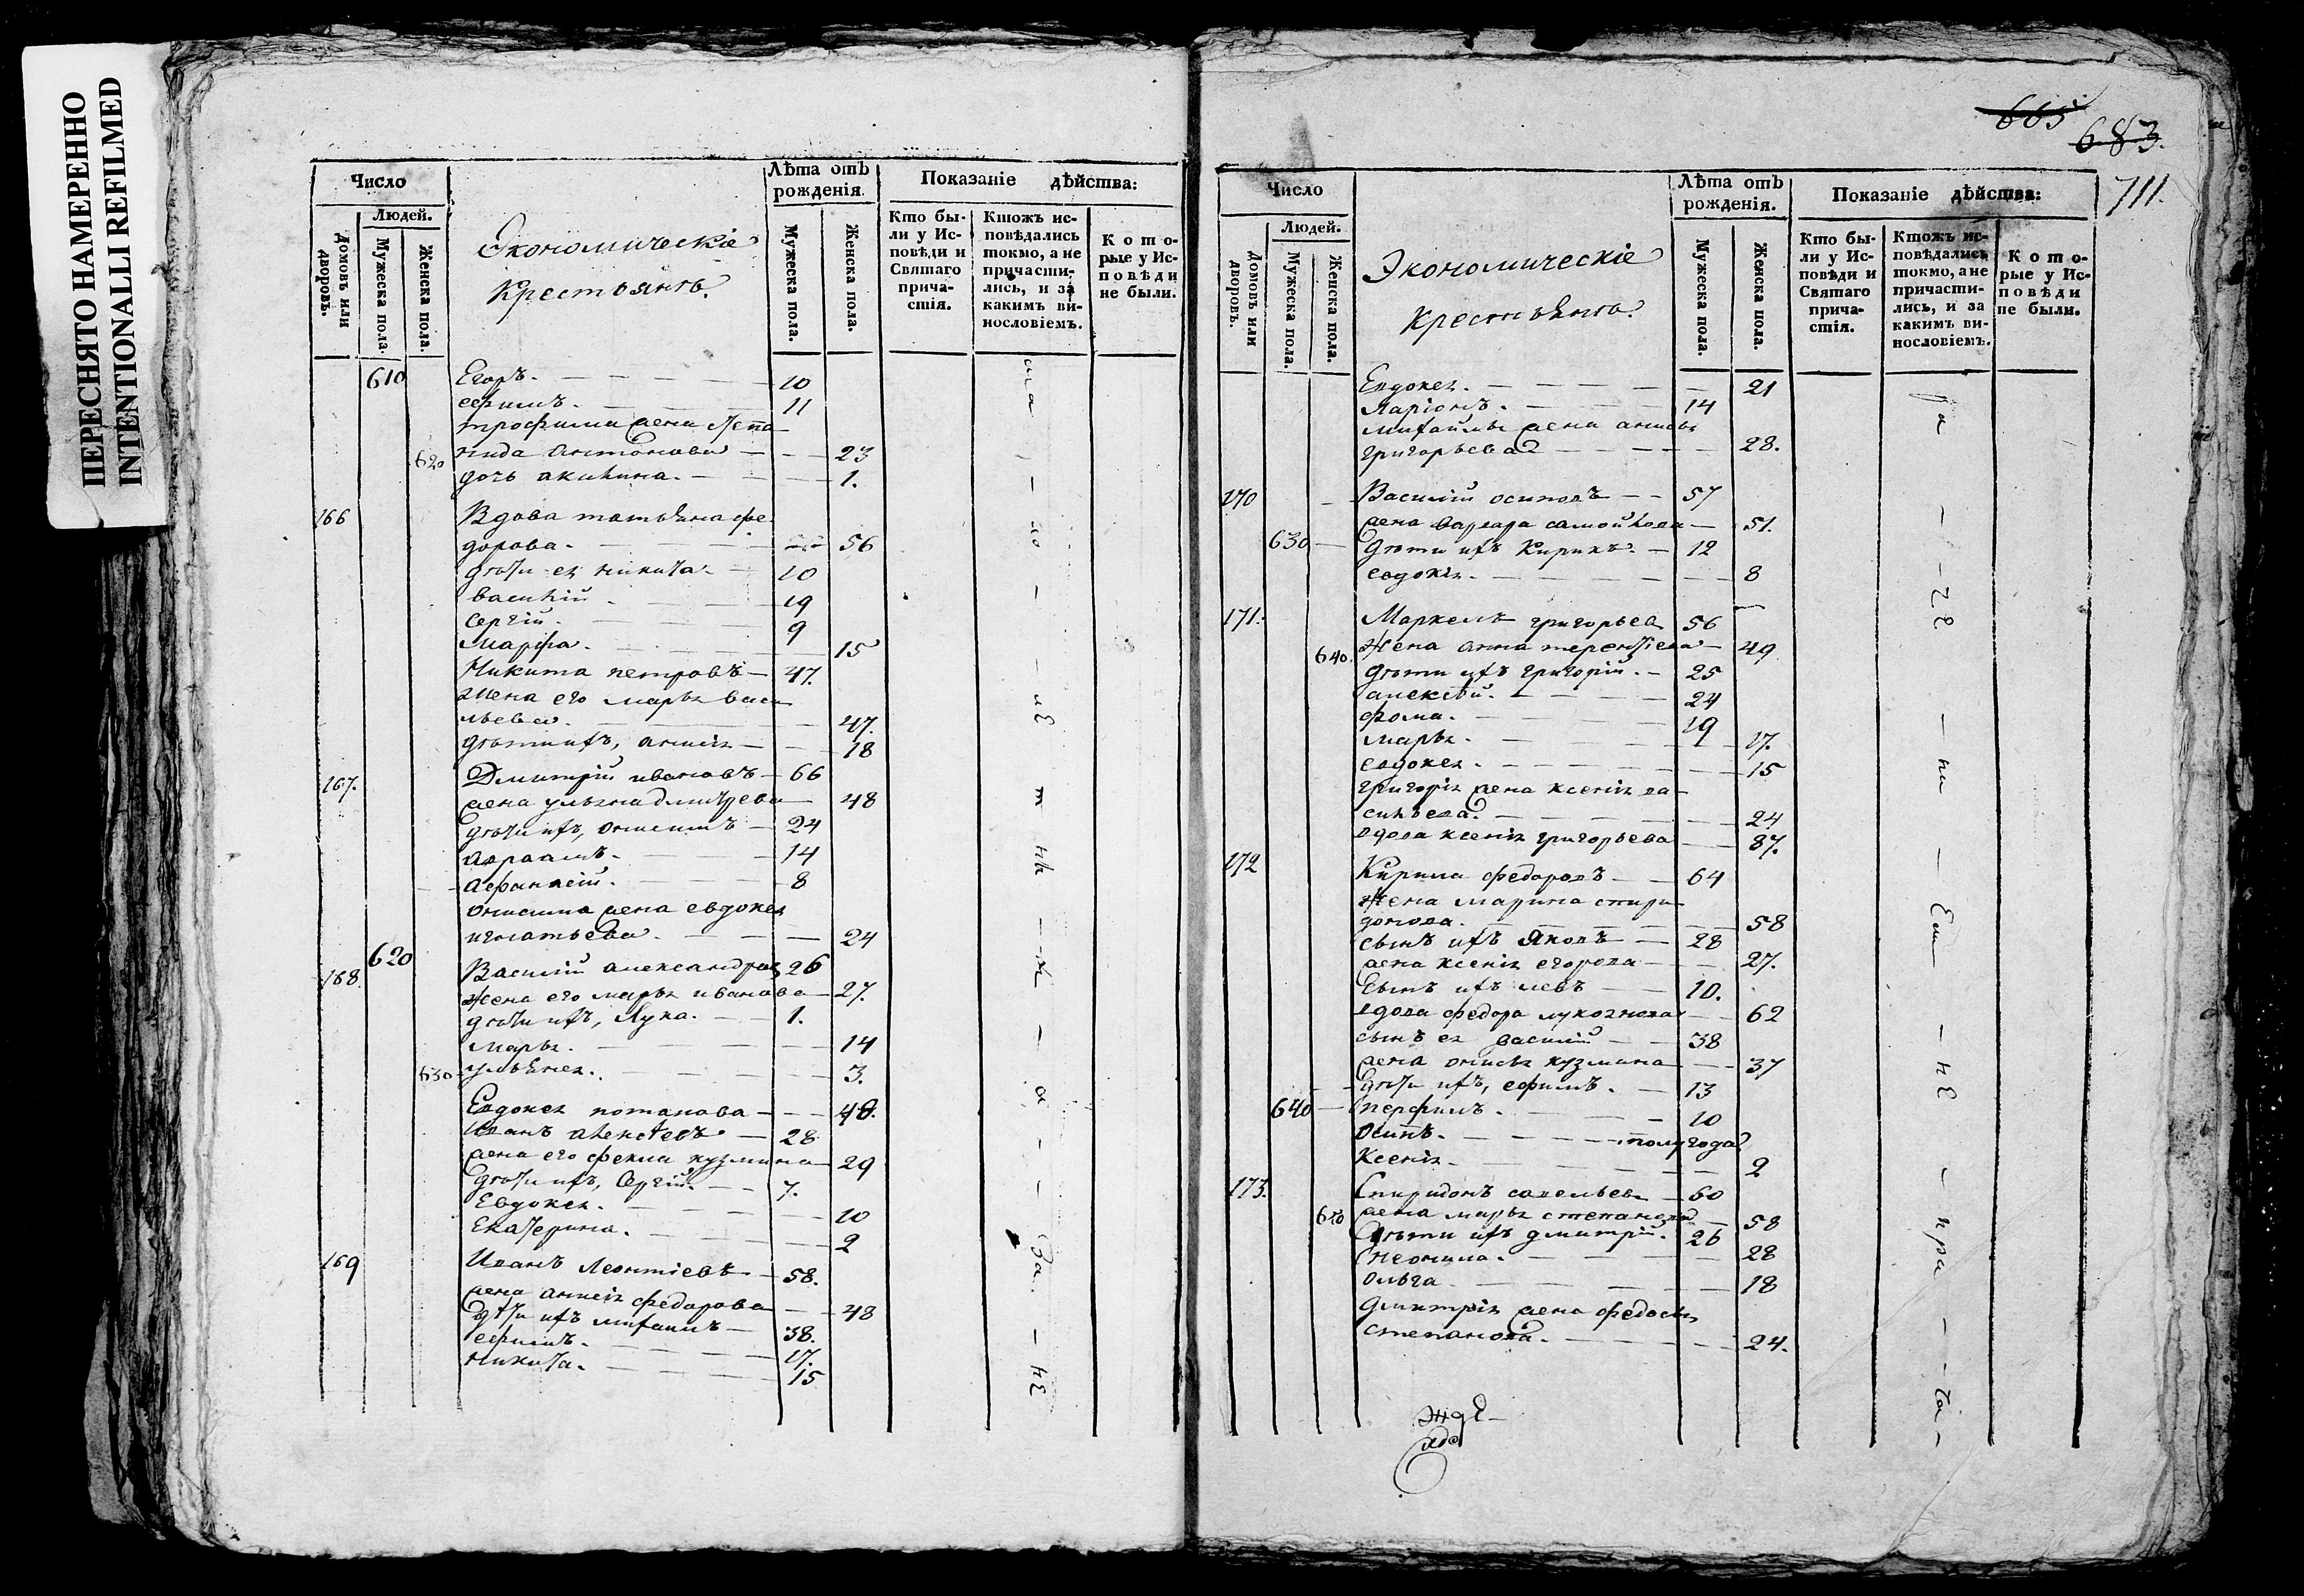 ПЕРЕСНЯТО НАМЕРЕННО
INTENTIONALLI REFILMED
Число
Людей.
Домовъ или дворовъ.
Мужеска пола.
Женска пола.
Экономическіе
Крестьянѣ.
Лѣта отъ
рожденія.
Мужеска пола.
Женска пола.
Показаніе дѣйства:
Кто бы-
ли у Ис-
повѣди и
Святаго
прича-
стія.
Ктожъ ис-
повѣдались
токмо, а не
причасти-
лись, и за
какимъ ви-
нословіемъ.
Кото-
рые у Ис-
повѣди
не были.
610 Егоръ. 10
ефимъ. 11
трофима жена Степа
нида антонова 23
620
дочь акилина. 1.
166 Вдова татьяна фе
дорова. 56
дѣти ея никита. 10
василій 19
Сергій. 9
Марфа. 15
Никита петровъ 47.
жена его марья васи
льева. 47.
дѣти ихъ, анисія 18
167. Дмитрій ивановъ 66
жена ульяна дмитрева 48
дѣти ихъ, онисимъ 24
авраамъ. 14
афанасій. 8
онисима жена евдокея
игнатьева. 24
620
168. Василій александровъ 26
жена его марья иванова 27.
дѣти ихъ, Лука. 1.
марья. 14
630 ульянея. 3.
Евдокея потапова 48.
Иванъ алексѣевъ 28
жена его фекла кузмина 29
дѣти ихъ, Сергій. 7.
Евдокея. 10
Екатерина. 2
169 Иванъ Леонтіевъ 58.
жена анисія федорова 48
дѣти ихъ михаилъ 38.
ефимъ. 17.
никита. 15
665
683.
711.
Число
Людей.
Домовъ или дворовъ.
Мужеска пола.
Женска пола.
Экономическіе
крестьянѣ.
Лѣта отъ
рожденія.
Мужеска пола.
Женска пола.
Показаніе дѣйства:
Кто бы-
ли у Ис-
повѣди и
Святаго
прича-
стія.
Ктожъ ис-
повѣдались
токмо, а не
причасти-
лись, и за
какимъ ви-
нословіемъ.
Кото-
рые у Ис-
повѣди
не были.
Евдокея. 21
Ларіонъ. 14
михайлы жена анисья
григорьева 28.
170 Василій осиповъ 57
жена варвара самойлова 51.
630 дѣти ихъ Кирикъ. 12
евдокія. 8
171. Маркелъ григорьевъ 56
640. жена анна терентіева 49
дѣти ихъ григорій. 25
алексѣй. 24
фома. 19
марья. 17.
евдокея. 15
григорія жена ксенія ва
сильева. 24
вдова ксенія григорьева 87.
172 Кирила федоровъ 64
жена марина спири
донова. 58
сынъ ихъ Яковъ 28
жена ксенія егорова 27.
сынъ ихъ левъ 10.
вдова федора лукоянова 62
сынъ ея василій 38
жена онисья кузмина 37
дѣти ихъ, ефимъ. 13
640 перфилъ. 10
Осипъ. полугода
Ксенія. 2
173. Спиридонъ савельевъ 60
650 жена марья степанова 58
дѣти ихъ дмитрій. 26
неонила. 28
Ольга 18
дмитрія жена федосья
степанова. 24.